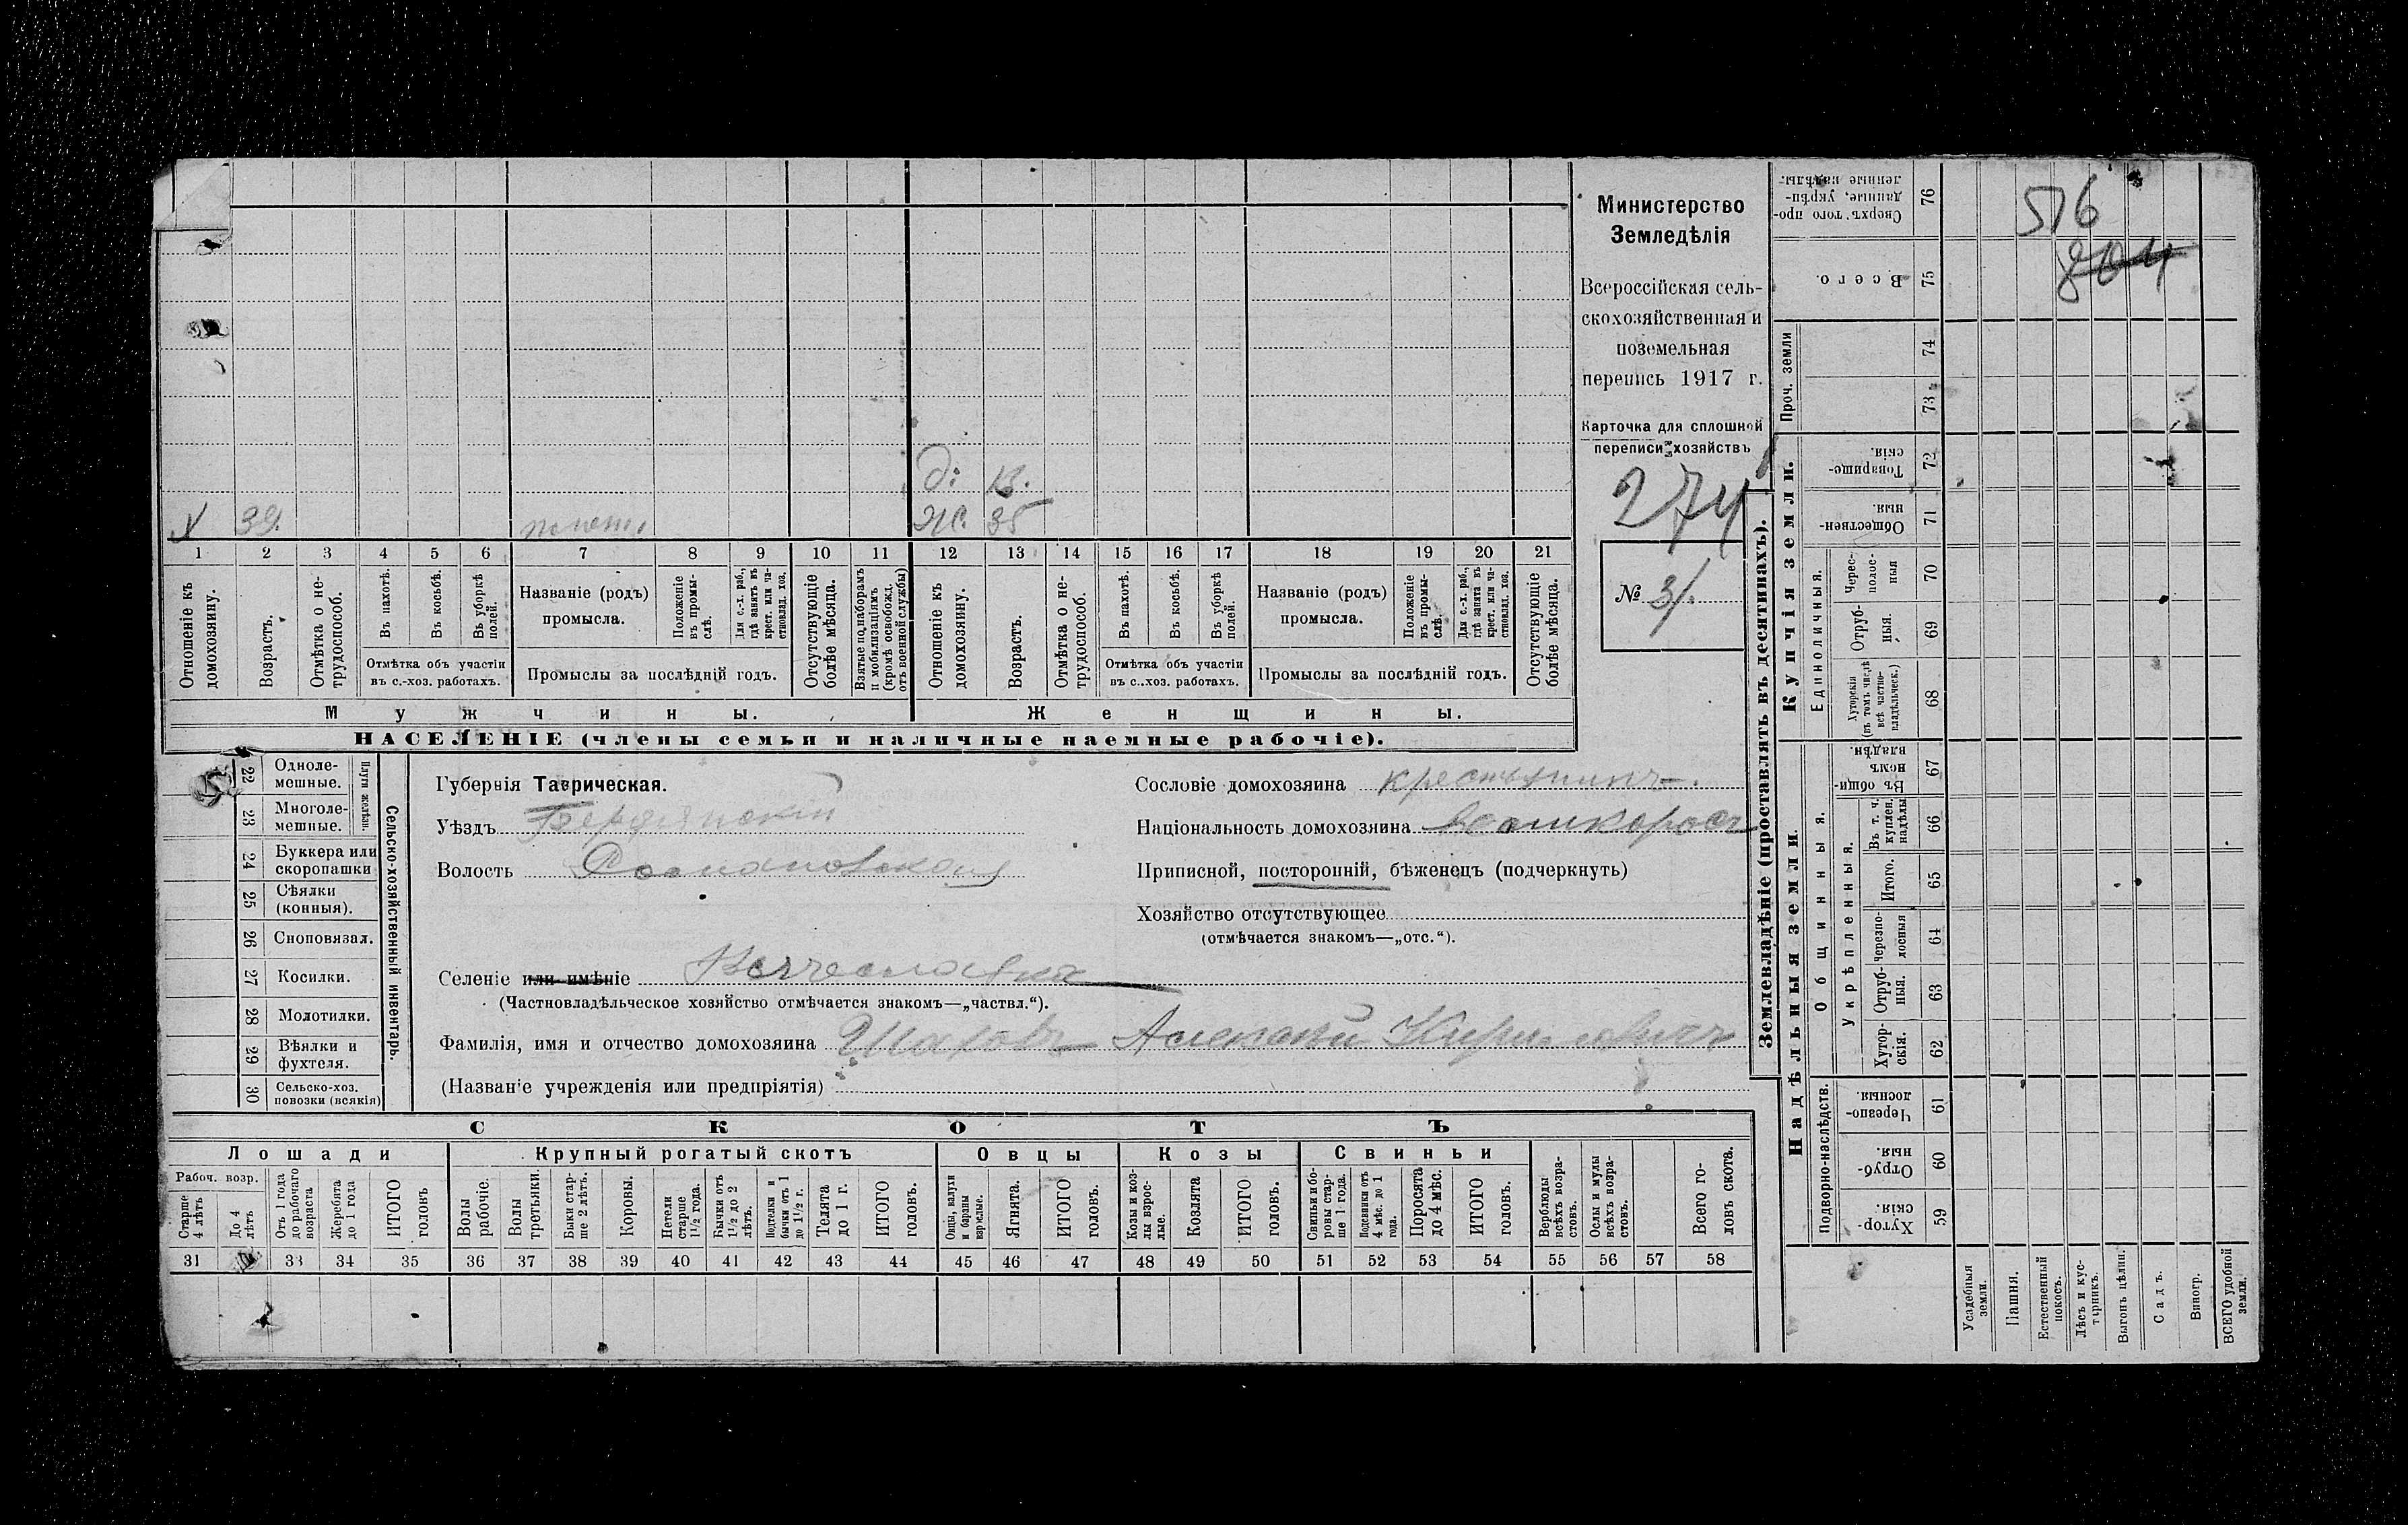 Министерство
Земледѣлія
Всероссійская сель-
скохозяйственная и
поземельная
перепись 1917 г.
Карточка для сплошной
переписи хозяйствъ
274
№ 31.
516
804
д: 13.
39. ж. 35
1 2 3 4 5 6 7 8 9 10 11 12 13 14 15 16 17 18 19 20 21
Отношеніе къ домохозяину.
Возрастъ.
Отмѣтка о не-трудоспособ.
Въ пахотѣ.
Въ косьбѣ.
Въ уборкѣ полей.
Отмѣтка объ участіи
въ с.-хоз. работахъ.
Названіе (родъ)
промысла.
Положеніе въ промы-слѣ.
Для с.-х. раб., гдѣ занятъ въ крест. или ча-стновлад. хоз.
Промыслы за послѣдній годъ.
Отсутствующіе болѣе мѣсяца.
Взятые по наборамъ и мобилизаціямъ (кромѣ освобожд. отъ военной службы)
Отношеніе къ домохозяину.
Возрастъ.
Отмѣтка о не-трудоспособ.
Въ пахотѣ.
Въ косьбѣ.
Въ уборкѣ полей.
Отмѣтка объ участіи
въ с.-хоз. работахъ.
Названіе (родъ)
промысла.
Положеніе въ промы-слѣ.
Для с.-х. раб., гдѣ занята въ крест. или ча-стновлад. хоз.
Промыслы за послѣдній годъ.
Отсутствующіе болѣе мѣсяца.
Мужчины. Женщины.
НАСЕЛЕНІЕ (члены семьи и наличные наемные рабочіе).
22 Одноле-мешные.
23 Многоле-мешные.
Плуги желѣзн.
24 Буккера или скоропашки
25 Сѣялки (конныя).
26 Сноповязал.
27 Косилки.
28 Молотилки.
29 Вѣялки и фухтеля.
30 Сельско-хоз. повозки (всякія)
Сельско-хозяйственный инвентарь.
Губернія Таврическая.
Уѣздъ Бердянскій
Волость
Селеніе или имѣніе
(Частновладѣльческое хозяйство отмѣчается знакомъ—„частвл.“).
Фамилія, имя и отчество домохозяина Шаховъ Алексѣй Кириловичъ
(Названіе учрежденія или предпріятія)
Сословіе домохозяина крестьянинъ.
Національность домохозяина великоросъ
Приписной, посторонній, бѣженецъ (подчеркнуть)
Хозяйство отсутствующее
(отмѣчается знакомъ—„отс.“).
СКОТЪ
Лошади Крупный рогатый скотъ Овцы Козы Свиньи
Рабоч. возр.
Старше 4 лѣтъ
До 4 лѣтъ
Отъ 1 года до рабочаго возраста
Жеребята до 1 года
ИТОГО головъ
Волы рабочіе.
Волы третьяки.
Быки стар-ше 2 лѣтъ.
Коровы.
Нетели старше 1½ года.
Бычки отъ 1½ до 2 лѣтъ.
Подтелки и бычки отъ 1 до 1½ г.
Телята до 1 г.
ИТОГО головъ.
Овцы, валухи и бараны взрослые.
Ягнята.
ИТОГО головъ.
Козы и коз-лы взрос-лые.
Козлята
ИТОГО головъ.
Свиньи и бо-ровы стар-ше 1 года.
Подсвинки отъ 4 мѣс. до 1 года.
Поросята до 4 мѣс.
ИТОГО головъ.
Верблюды всѣхъ возра-стовъ.
Ослы и мулы всѣхъ возра-стовъ.
Всего го-ловъ скота.
31 33 34 35 36 37 38 39 40 41 42 43 44 45 46 47 48 49 50 51 52 53 54 55 56 57 58
Землевладѣніе (проставлять въ десятинахъ).
Купчія земли.
Надѣльныя земли.
Проч. земли
Единоличныя.
Общинныя.
Укрѣпленныя.
Подворно-наслѣдств.
Сверхъ того про-данные, укрѣп-ленные надѣлы. 76
Всего. 75
74
73
Товарище-скія. 72
Обществен-ныя. 71
Черес-полос-ныя 70
Отруб-ныя. 69
Хуторскія (въ томъ числѣ всѣ частно-владѣльческ.) 68
Въ общин-номъ владѣн. 67
Въ т. ч. куплен. надѣлы 66
Итого. 65
Черезпо-лосныя 64
Отруб-ныя. 63
Хутор-скія. 62
Черезпо-лосныя. 61
Отруб-ныя. 60
Хутор-скія. 59
Усадебныя земли.
Пашня.
Естественный покосъ.
Лѣсъ и кус-тарникъ.
Выгонъ цѣлин.
Садъ.
Виногр.
ВСЕГО удобной земли.